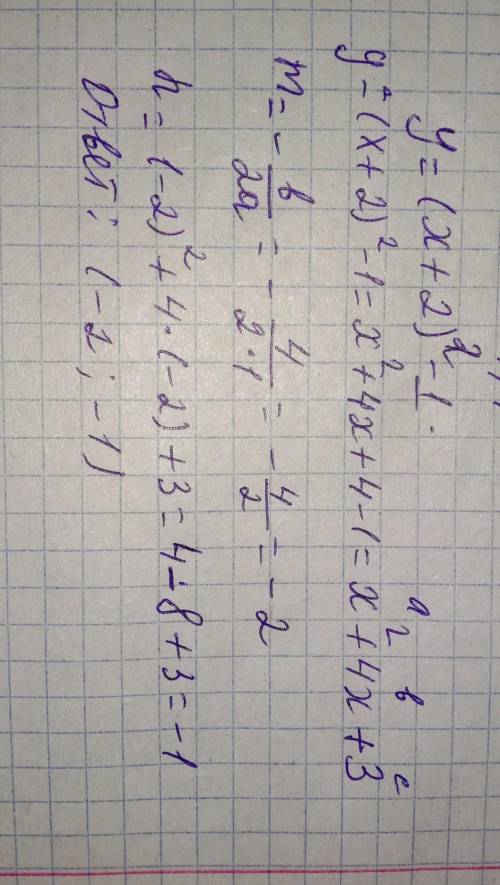 y = (x + 2)² - 1.
y = (x + 2)² - 1 = x² + 4x + 4 - 1 = x² + 4x + 3
a b c
m = - b/2a = - 4/2·1 = - 4/2 = - 2
n = (-2)² + 4·(-2) + 3 = 4 - 8 + 3 = -1
Ответ: (-2; -1)